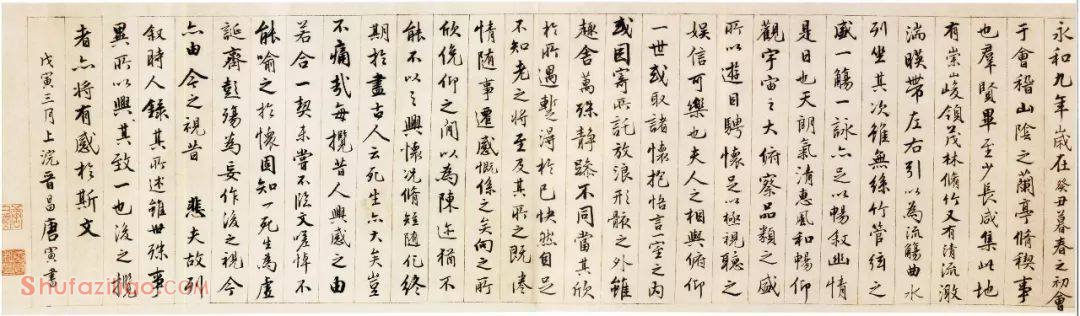 永和九年歲在癸丑暮春之初會
于會稽山陰之蘭亭脩稧事
也羣賢畢至少長咸集此地
有崇山峻領茂林脩竹又有清流激
湍暎帶左右引以為流觴曲水
列坐其次雖無絲竹管弦之
盛一觴一詠亦足以暢叙幽情
是日也天朗氣清惠風和暢仰
觀宇宙之大俯察品類之盛
所以遊目騁懷足以極視聽之
娛信可樂也夫人之相與俯仰
一世或取諸懷抱悟言一室之內
或因寄所託放浪形骸之外雖
趣舍萬殊靜躁不同當其欣
於所遇暫得於己快然自足
不知老之將至及其所之既惓
情隨事遷感慨係之矣向之所
欣俛仰之閒以為陳迹猶不
能不以之興懷況脩短隨化終
期於盡古人云死生亦大矣豈
不痛哉每攬昔人興感之由
若合一契未嘗不臨文嗟悼不
能喻之於懷固知一死生為虛
誕齊彭殤為妄作後之視今
亦由今之視昔 悲夫故列
叙時人錄其所述雖世殊事
異所以興其致一也後之攬
者亦將有感於斯文
戊寅三月上浣晉昌唐寅書